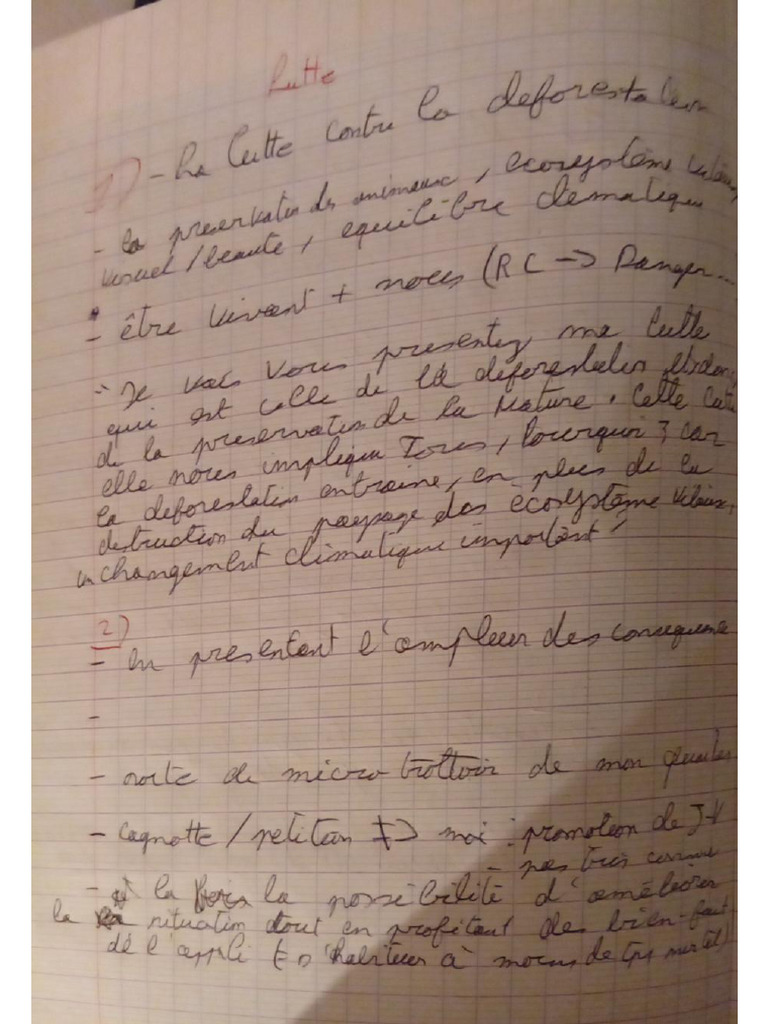 Lutte
1) - La lutte contre la deforestation
- la preservation des animaux, ecosystème
visuel/beauté, equilibre climatique
- être vivant + nous (RC -> Danger...
- Je vais vous presenter ma lutte
qui est celle de la deforestation
de la preservation de la Nature. Cette
elle nous implique Tous, Pourquoi ? car
la deforestation entraine, en plus de la
destruction du paysage des écosystème
un changement climatique important !
2)
- en presentant l'ampleur des consequence
-
- sorte de micro trottoir de mon quartier
- cagnotte/petition => moi : promotion de
- pas très
- la la possibilité d'améliorer
la situation tout en profitant des bien-fait
de l'appli (s'habituer à moins de tps